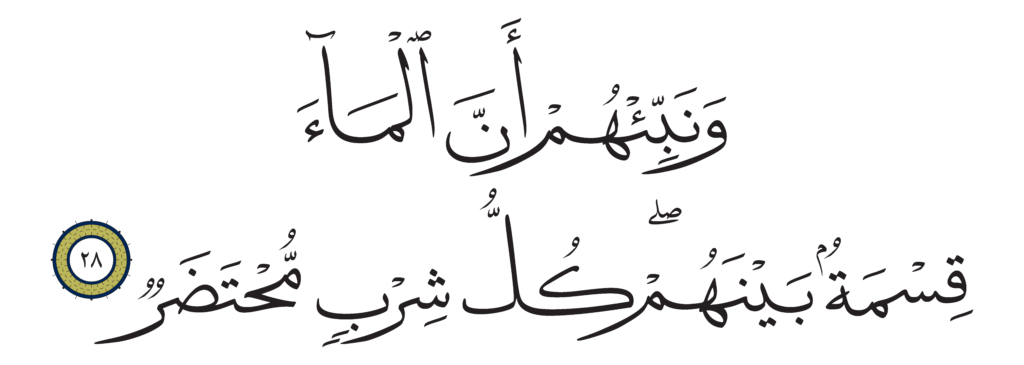 وَنَبِّئْهُمْ أَنَّ ٱلْمَآءَ
قِسْمَةٌۢ بَيْنَهُمْ ۖ كُلُّ شِرْبٍ مُّحْتَضَرٌ ٢٨